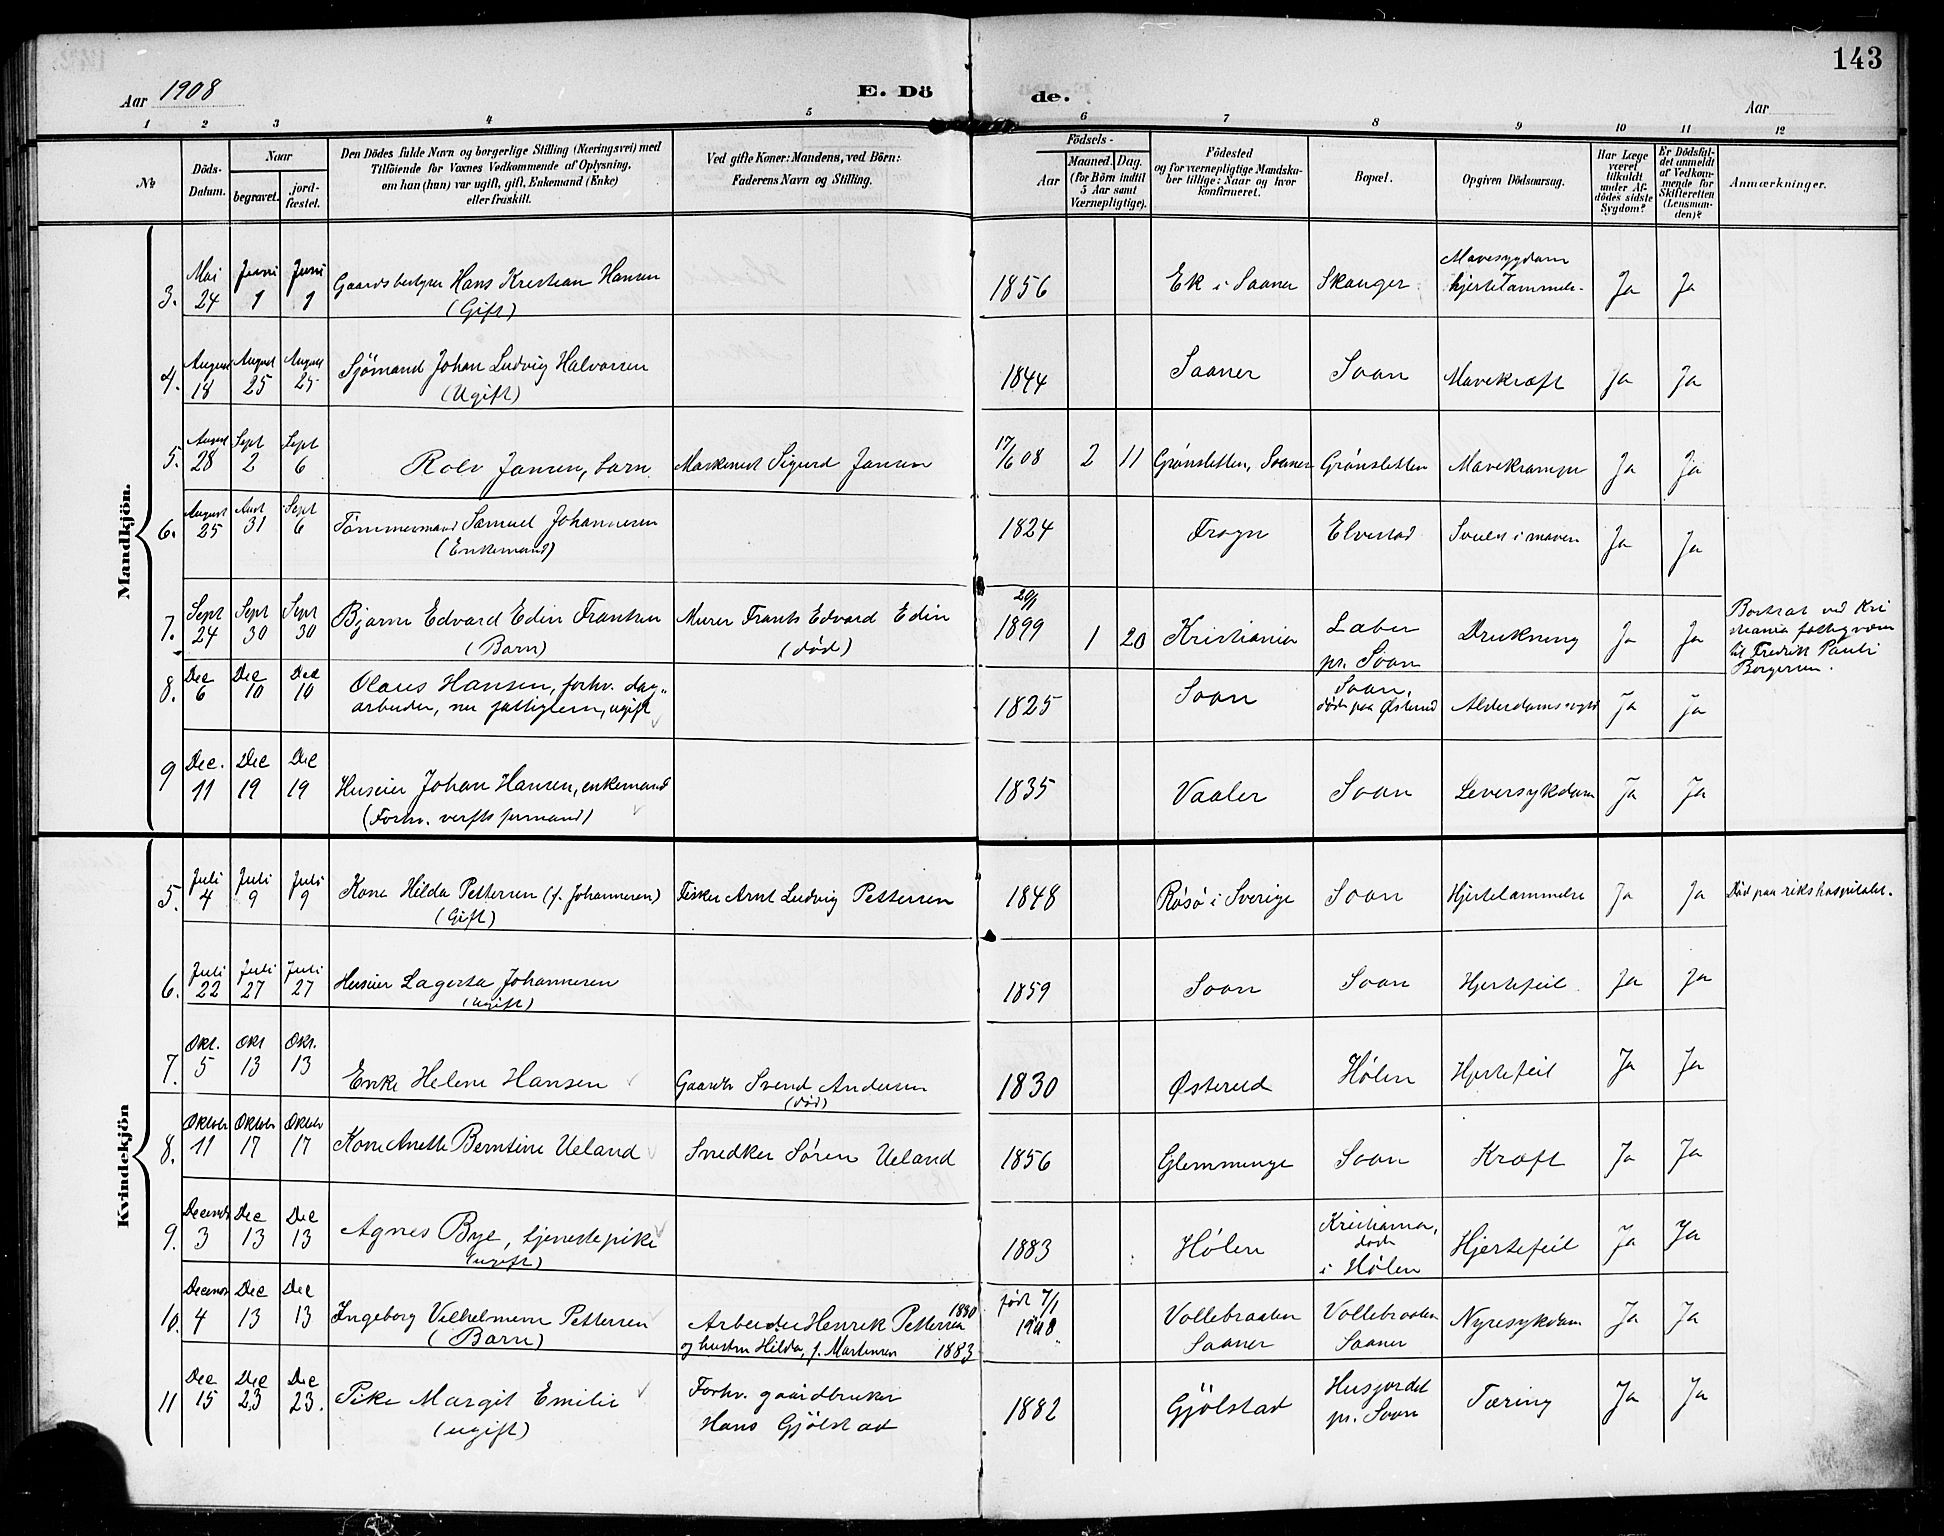 143
Aar 1908
E. Dö de.
Aar
1 2 3 4 5 6 7 8 9 10 11 12
№
Döds-
Datum.
Naar
begravet.
jord-
fæstet.
Den Dödes fulde Navn og borgerlige Stilling (Næringsvei) med
Tilföiende for Voxnes Vedkommende af Oplysning,
om han (hun) var ugift, gift, Enkemand (Enke)
eller fraskilt.
Ved gifte Koner: Mandens, ved Börn:
Faderens Navn og Stilling.
Födsels-
Aar
Maaned. Dag.
(for Börn indtil
5 Aar samt
Værnepligtige).
Födested
og for værnepligtige Mandska-
ber tillige: Naar og hvor
konfirmeret.
Bopæl.
Opgiven Dödsaarsag.
Har Læge
været
tilkaldt
under Af-
dödes sidste
Sygdom?
Er Dödsfal-
det anmeldt
af Vedkom-
mende for
Skifteretten
(Lensman-
den)?
Anmærkninger.
Mandkjön.
3. Mai 24 Juni 1 Juni 1 Gaardsbestyrer Hans Kristian Hansen
(Gift)
1856 Ek i Saaner Skauger Mavesygdom
hjertelammelse Ja Ja
4. August 18 August 25 August 25 Sjömand Johan Ludvig Halvorsen
(Ugift)
1844 Saaner Soon Mavekræft Ja Ja
5. August 28 Sept 2 Sept 6 Rolv Jansen, barn Maskinist Sigurd Jansen 17/6 08 2 11 Grønsletten, Saaner Grønsletten Mavekrampe Ja Ja
6. August 25 Aust 31 Sept 6 Tømmermand Samuel Johannesen
(Enkemand)
1824 Frogn Elvestad Svulst i maven Ja Ja
7. Sept 24 Sept 30 Sept 30 Bjarne Edvard Edin Frantsen
(Barn)
Murer Frants Edvard Edin
(død)
1899 1 20 Kristiania Laber
pr. Soon
Drukning Ja Ja
Bortsat ved Kri
stiania fattigvæsen
til Fredrik Pauli
Borgersen.
8. Dec 6 Dec 10 Dec 10 Olaus Hansen, forhv. dag-
arbeider, nu fattiglem, ugift
1825 Soon Soon,
døde paa Østerud
Alderdomssvagh Ja Ja
9 Dec. 11 Dec 19 Dec 19 Huseier Johan Hansen, enkemand
(Forhv. verftsformand)
1835 Vaaler Soon Leversykdom Ja Ja
Kvindekjön
5. Juli 4 Juli 9 Juli 9 Kone Hilda Pettersen (f. Johannesen)
(Gift)
Fisker Arnt Ludvig Pettersen 1848 Røsø i Sverige Soon Hjertelammelse Ja Ja Död paa rikshospitalet.
6. Juli 22 Juli 27 Juli 27 Huseier Lagerta Johannesen
(ugift)
1859 Soon Soon Hjertefeil Ja Ja
7. Okt. 5 Okt 13 Okt. 13 Enke Helene Hansen Gaardbr Svend Andersen
(død)
1830 Østerud Hølen Hjertefeil Ja Ja
8. Oktober 11 Oktober 17 Oktober 17 Kone Anette Berntine Ueland Snedker Søren Ueland 1856 Glemminge Soon Kræft Ja Ja
9. December 3 Dec 13 Dec 13 Agnes Bye, tjenestepike
(ugift)
1883 Hølen Kristiania,
døde
i Hølen
Hjertefeil Ja Ja
10. December 4 Dec 13 Dec 13 Ingeborg Vilhelmine Pettersen
(Barn)
Arbeider Henrik Pettersen 1880
og hustru Hilda, f. Martinsen 1883
født 7/1
1908
Vollebraaten
Saaner
Vollebraaten
Saaner
Nyresykdom Ja Ja
11 Dec 15 Dec 23 Dec 23. Pike Margit Emilie
(ugift)
Forhv. gaardbruker
Hans Gjølstad
1882 Gjølstad Husjordet
pr. Soon
Tæring Ja Ja